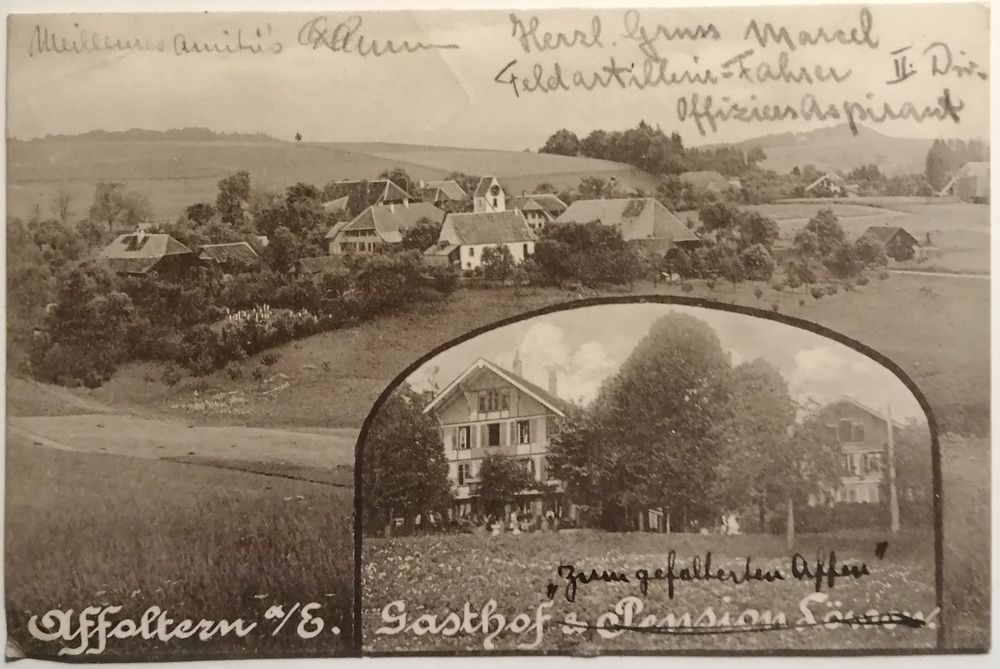 Meilleures amitiés
Herzl. Gruss Marcel
Feldartillerie=Fahrer II. Div.
OffiziersAspirant
„Zum gefalterten Affen"
Affoltern a/E.
Gasthof & Pension Löwen